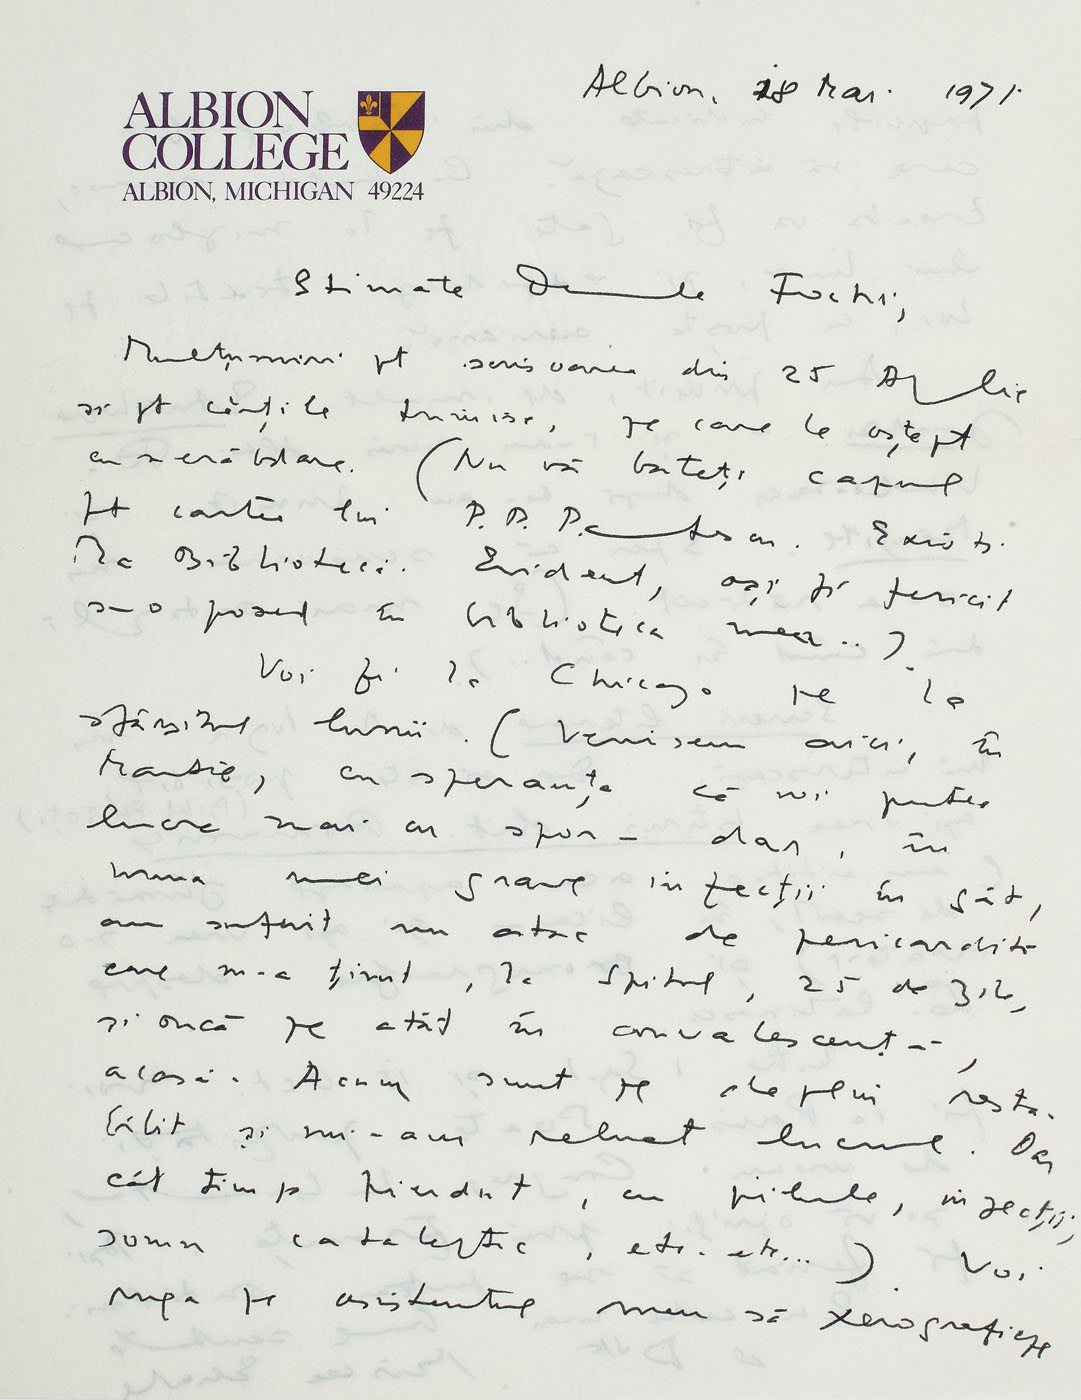 ALBION
COLLEGE
ALBION, MICHIGAN 49224
Albion, 18 Mai 1971
Stimate Domnule Fochi,
Mulțumiri pt scrisoarea din 25 Aprilie
și pt cărțile trimise, pe care le aștept
cu nerăbdare. (Nu vă bateți capul
pt cartea lui P. P. Panaitescu. Există
la Bibliotecă. Evident, ași fi fericit
s-o posed în biblioteca mea..)
Voi fi la Chicago pe la
sfârșitul lunii. (Venisem aici, în
Martie, cu speranța că voi putea
lucra mai cu spor – dar, în
urma unei grave infecții în gât,
am suferit un atac de pericardită
care m-a ținut, la spital, 25 de zile,
și încă pe atât în convalescență,
acasă. Acum sunt pe deplin resta-
bilit și mi-am reluat lucrul. Dar
cât timp pierdut, cu pilule, injecții,
somn cataleptic, etc. etc...) Voi
ruga pe asistentul meu să xerografieze